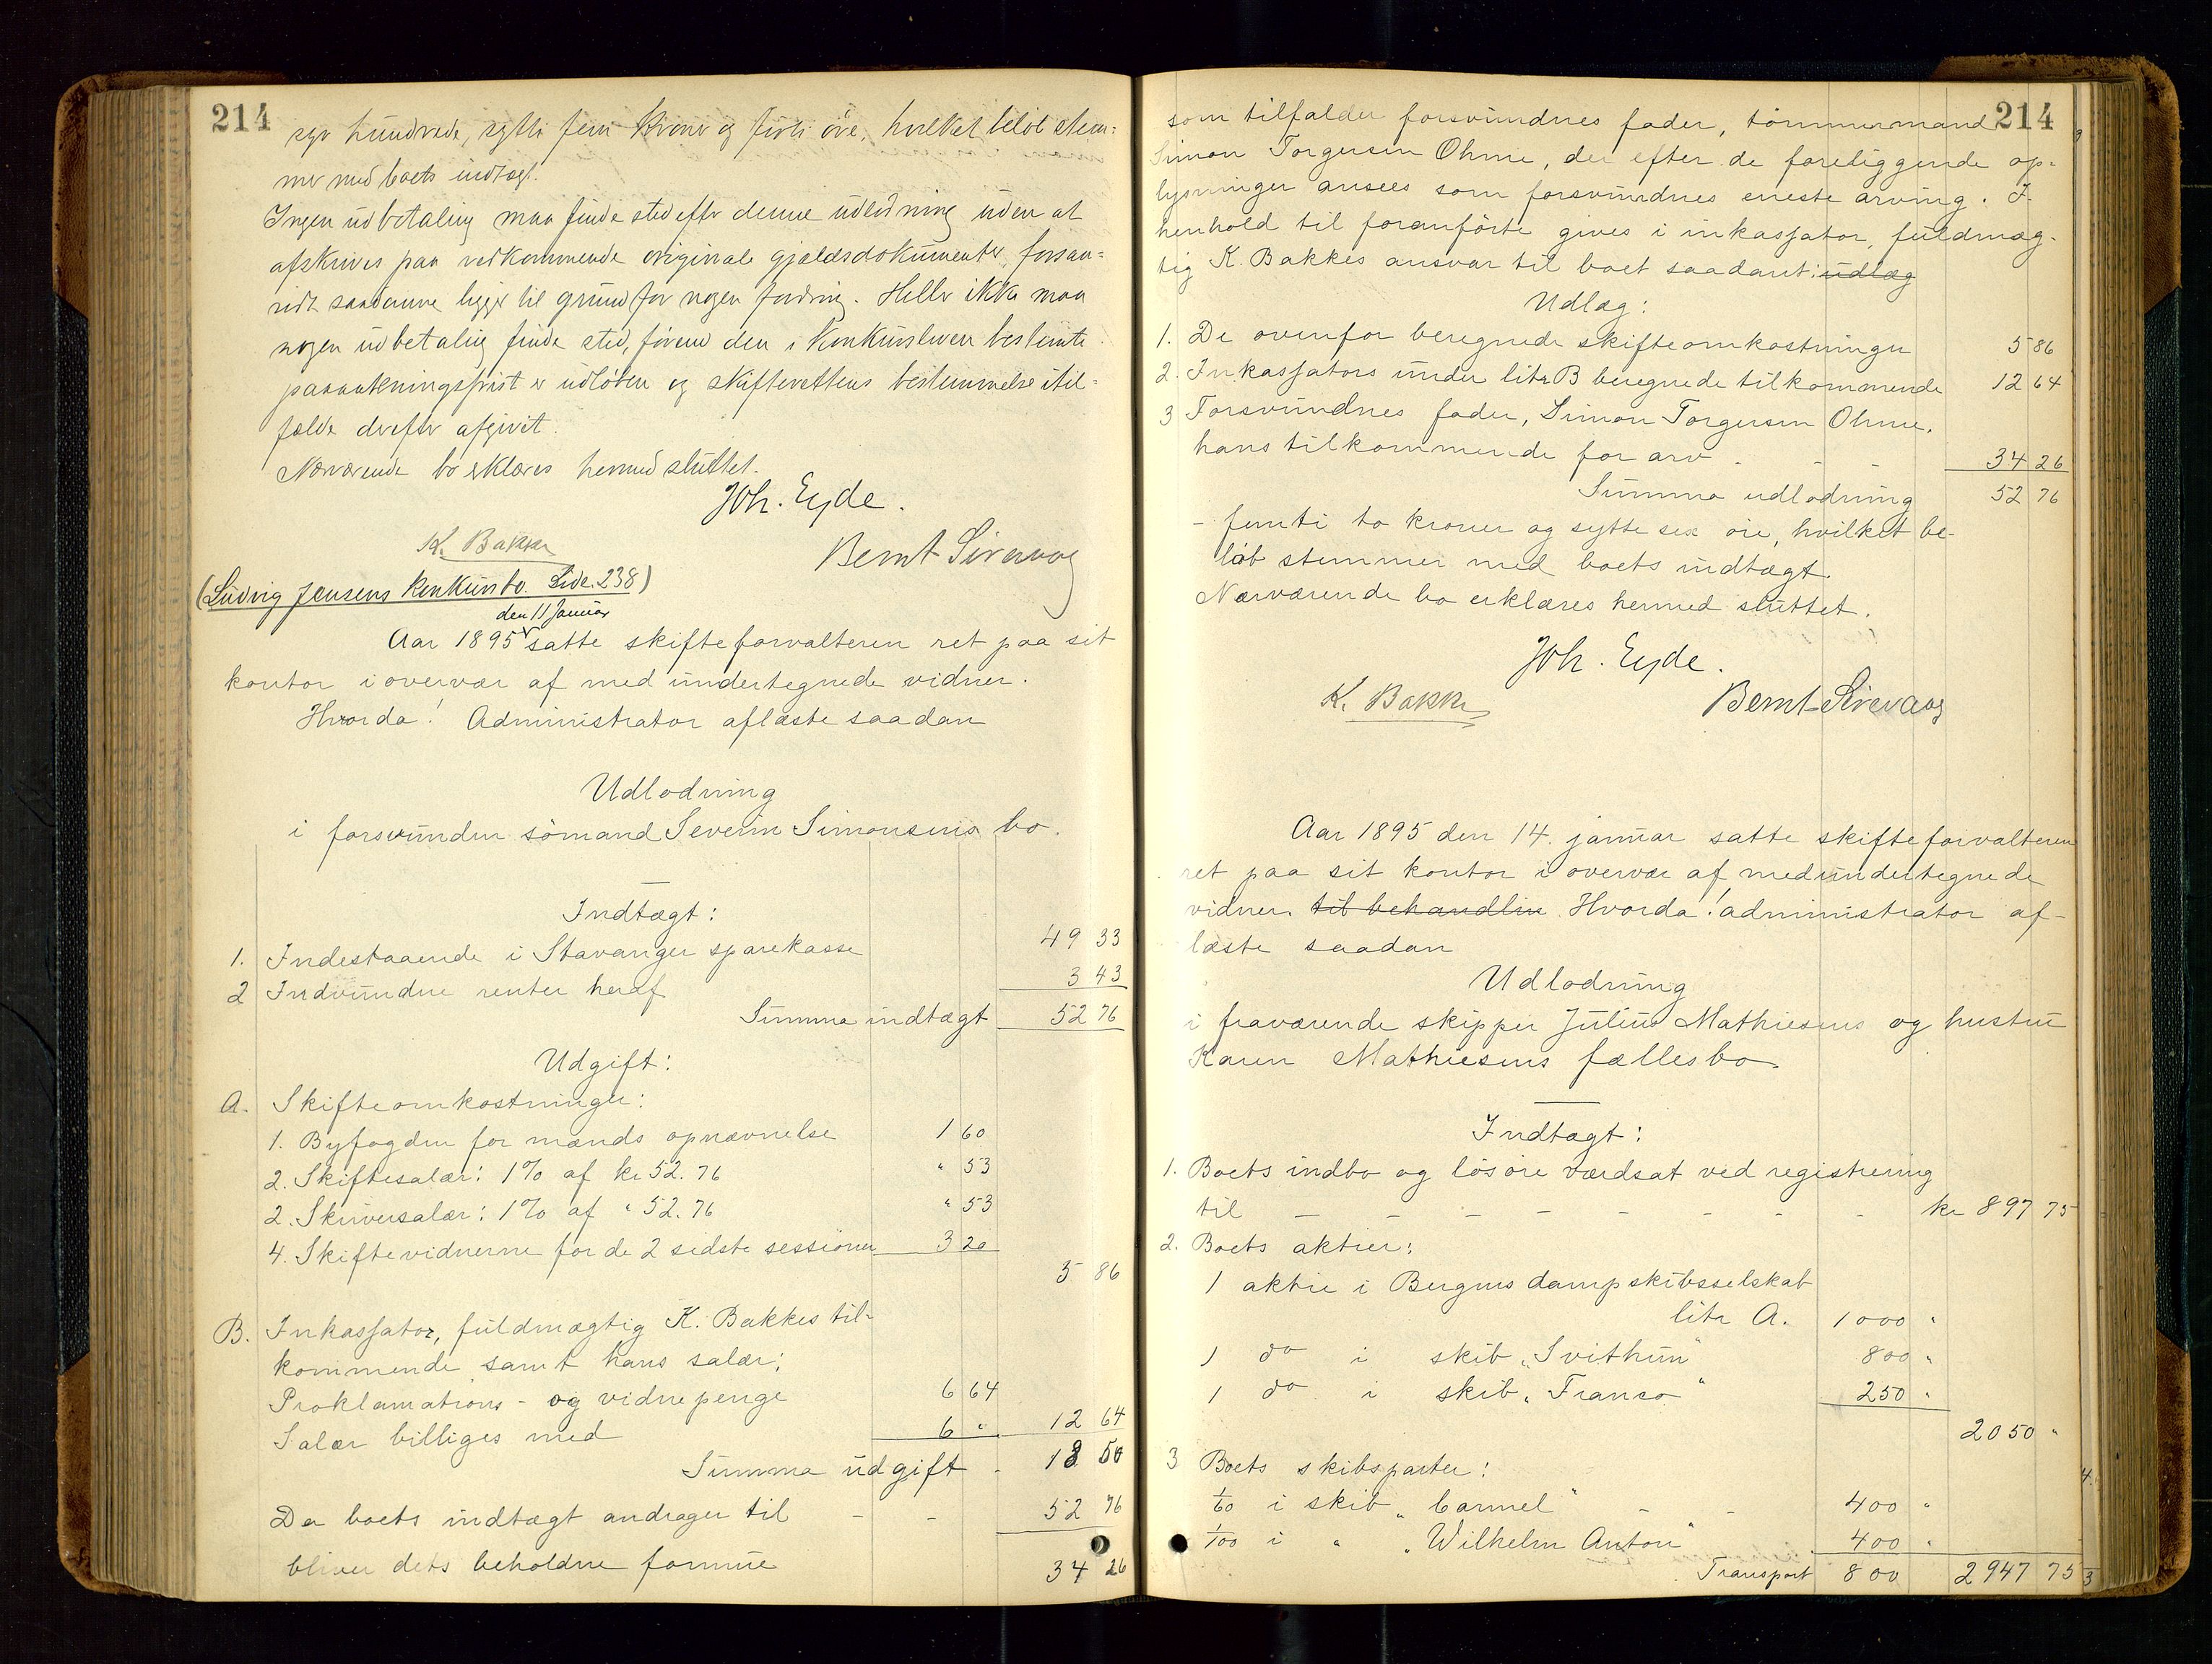 214
syv hundrede, sytti fem kroner og førti øre, hvilket beløb stem-
mer med boets indtægt.
Ingen udbetaling maa finde sted efter denne udlodning uden at
afskrives paa vedkommende originale gjældsdokumenter, forsaa-
vidt saadanne ligger til grund for nogen fordring. Heller ikke maa
nogen udbetaling finde sted, førend den i Konkursloven bestemte
paaankningsfrist er udløben og skifterettens bestemmelse i til-
fælde derefter afgivet.
Nærværende bo erklæres hermed sluttet.
Joh. Eyde.
K. Bakke
Bernt Sirevaag
(Ludvig Jensens Konkursbo. Side. 238)
den 11 Januar
Aar 1895 satte skifteforvalteren ret paa sit
kontor i overvær af medundertegnede vidner.
Hvorda! Administrator aflæste saadan
Udlodning
i forsvunden sømand Severin Simonsens bo.
Indtægt:
1. Indestaaende i Stavanger sparekasse 49 33
2 Indvundne renter heraf 3 43
Summa indtægt 52 76
Udgift:
A. Skifteomkostninger:
1. Byfogden for mænds opnævnelse 1 60
2. Skiftesalær: 1% af kr 52. 76 " 53
2. Skriversalær: 1% af " 52. 76 " 53
4. Skiftevidnerne for de 2 sidste sessioner 3 20
5 86
B. Inkassator, fuldmægtig K. Bakkes til-
kommende samt hans salær:
Proklamations- og vidnepenge 6 64
Salær billiges med 6 " 12 64
Summa udgift - 18 50
Da boets indtægt andrager til - - 52 76
bliver dets beholdne formue 34 26
214
som tilfalder forsvundnes fader, tømmermand
Simon Torgersen Ohme, der efter de foreliggende op-
lysninger ansees som forsvundnes eneste arving. I
henhold til foranførte gives i inkassator, fuldmæg-
tig K. Bakkes ansvar til boet saadant: udlæg
Udlæg:
1. De ovenfor beregnede skifteomkostninger 5 86
2. Inkassators under litr B beregnede tilkommende 12 64
3 Forsvundnes fader, Simon Torgersen Ohme,
hans tilkommende for arv - - - 34 26
Summa udlodning 52 76
- femti to kroner og sytte sex øre, hvilket be-
løb stemmer med boets indtægt.
Nærværende bo erklæres hermed sluttet.
Joh. Eyde.
K. Bakke
Bernt Sirevaag
Aar 1895 den 14. januar satte skifteforvalteren
ret paa sit kontor i overvær af medundertegnede
vidner. til behandlin Hvorda! administrator af-
læste saadan
Udlodning
i fraværende skipper Julius Mathiesens og hustru
Karen Mathiesens fællesbo.
Indtægt:
1. Boets indbo og løsøre værdsat ved registrering
til - - - - - - - - kr 897 75
2. Boets aktier:
1 aktie i Bergens dampskibsselskab
litr A. 1000 "
1 do i skib "Svithun" 800 "
1 do i skib "Franco" 250 "
2050 "
3 Boets skibsparter:
1/60 i skib "Carmel" - - 400 "
1/100 i " "Wilhelm Anton" 400 "
Transport 800 2947 75